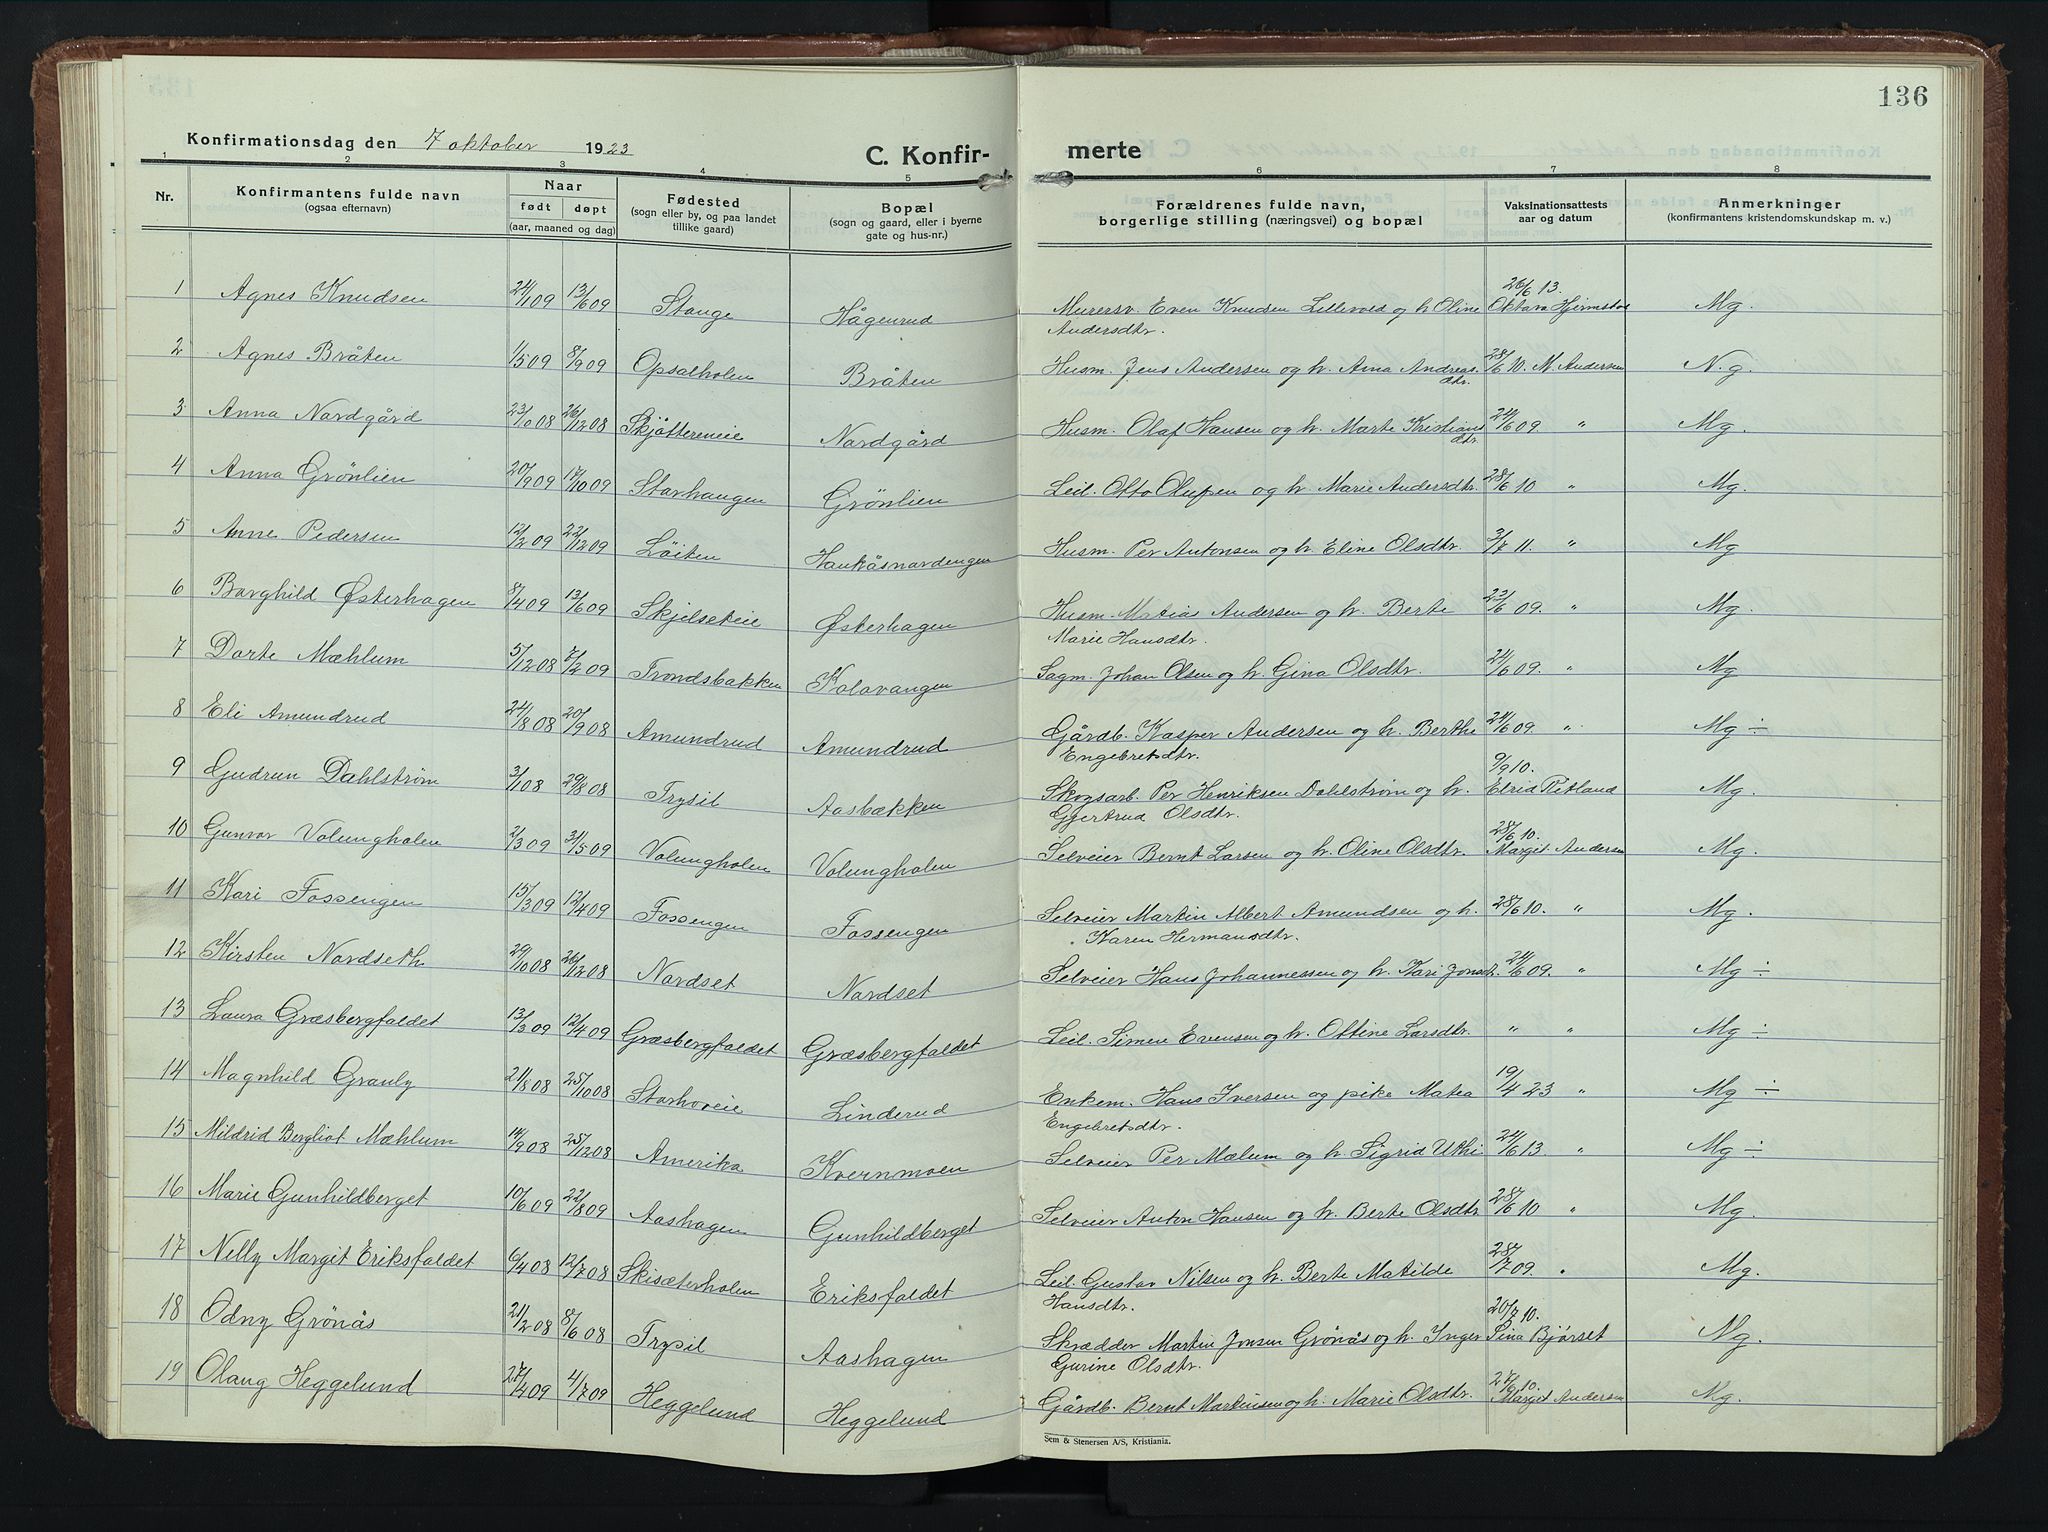 136
Konfirmationsdag den 7 oktober 1923
C. Konfir-
merte
1 2 3 4 5 6 7 8
Nr.
Konfirmantens fulde navn
(ogsaa efternavn)
Naar
født døpt
(aar, maaned og dag)
Fødested
(sogn eller by, og paa landet
tillike gaard)
Bopæl
(sogn og gaard, eller i byerne
gate og hus-nr.)
Forældrenes fulde navn,
borgerlige stilling (næringsvei) og bopæl
Vaksinationsattests
aar og datum
Anmerkninger
(konfirmantens kristendomskundskap m. v.)
1 Agnes Knudsen 24/1 09 13/6 09 Stange Hågenrud Murersv. Even Knudsen Lillevold og h. Oline 26/6 13. Oktava Hjermstad Mg.
Andersdtr.
2 Agnes Bråten 1/5 09 8/9 09 Opsalholen Bråten Husm. Jens Andersen og h. Anna Andreas- 28/6 10. M. Andersen N.g.
dtr.
3 Anna Nordgård 23/10 08 26/12 08 Skjöttereneie Nordgård Husm. Olaf Hansen og h. Marte Kristians 24/6 09 " Mg.
dtr.
4 Anna Grönlien 20/9 09 17/10 09 Storhaugen Grönlien Leil. Otto Olufsen og h. Marie Andersdtr. 28/6 10 " Mg.
5 Anne Pedersen 12/2 09 22/12 09 Löiten Haukåsnordengen Husm. Per Antonsen og h. Eline Olsdtr. 3/7 11. " Mg
6 Borghild Østerhagen 8/4 09 13/6 09 Skjelseteie Østerhagen Husm. Matias Andersen og h. Berte 23/6 09. " Mg.
Marie Hansdtr.
7 Dorte Mæhlum 5/12 08 7/2 09 Trondsbakken Kolovangen Sagm. Johan Olsen og h. Gina Olsdtr. 24/6 09. " Ng
8 Eli Amundrud 24/8 08 20/9 08 Amundrud Amundrud Gårdb. Kasper Andersen og h. Berthe 24/6 09. " Mg ÷
Engebretsdtr.
9 Gudrun Dahlstrøm 3/1 08 29/8 08 Trysil Aasbækken Skogsarb. Per Henriksen Dahlstrøm og h. 9/9 10. Elrid Petland Mg.
Gjertrud Olsdtr.
10 Gunvor Volungholen 2/3 09 31/5 09 Volungholen Volungholen Selveier Bernt Larsen og h. Oline Olsdtr. 28/6 10. Margit Andersen Mg.
11 Kari Fossengen 15/3 09 12/4 09 Fossengen Fossengen Selveier Martin Albert Amundsen og h. 28/6 10. " Mg.
Karen Hermansdtr.
12 Kirsten Nordseth 29/10 08 26/12 08 Nordset Nordset Selveier Hans Johannessen og h. Kari Jonsdr. 24/6 09. " Mg ÷
13 Laura Græsbergfaldet 13/3 09 12/4 09 Græsbergfaldet Græsbergfaldet Leil. Simen Evensen og h. Ottine Larsdtr. " " Mg ÷
14 Magnhild Granly 21/8 08 25/10 08 Storhoveie Linderud Enkem. Hans Iversen og pike Matea 19/4 23 " Mg ÷
Engebretsdtr.
15 Mildrid Bergliot Mæhlum 14/9 08 25/12 08 Amerika Kvernmoen Selveier Per Mælum og h. Sigrid Uthi 24/6 13 " Mg ÷
16 Marie Gunhildberget 10/6 09 22/8 09 Aashagen Gunhildberget Selveier Anton Hansen og h. Berte Olsdtr. 28/6 10 " Mg.
17 Nelly Margit Eriksfaldet 6/4 08 12/7 08 Skisæterholen Eriksfaldet Leil. Gustav Nilsen og h. Berte Matilde 28/7 09. " Mg.
Hansdtr.
18 Odny Grönås 21/2 08 8/6 08 Trysil Aashagen Skrædder Martin Jonsen Grönås og h. Inger 20/7 10. Sina Bjørset Ng.
Gurine Olsdtr.
19 Olaug Heggelund 27/4 09 4/7 09 Heggelund Heggelund Gårdb. Bernt Martinsen og h. Marie Olsdtr. 28/6 10. Margit Andersen Ng.
Sem & Stenersen A/S, Kristiania.